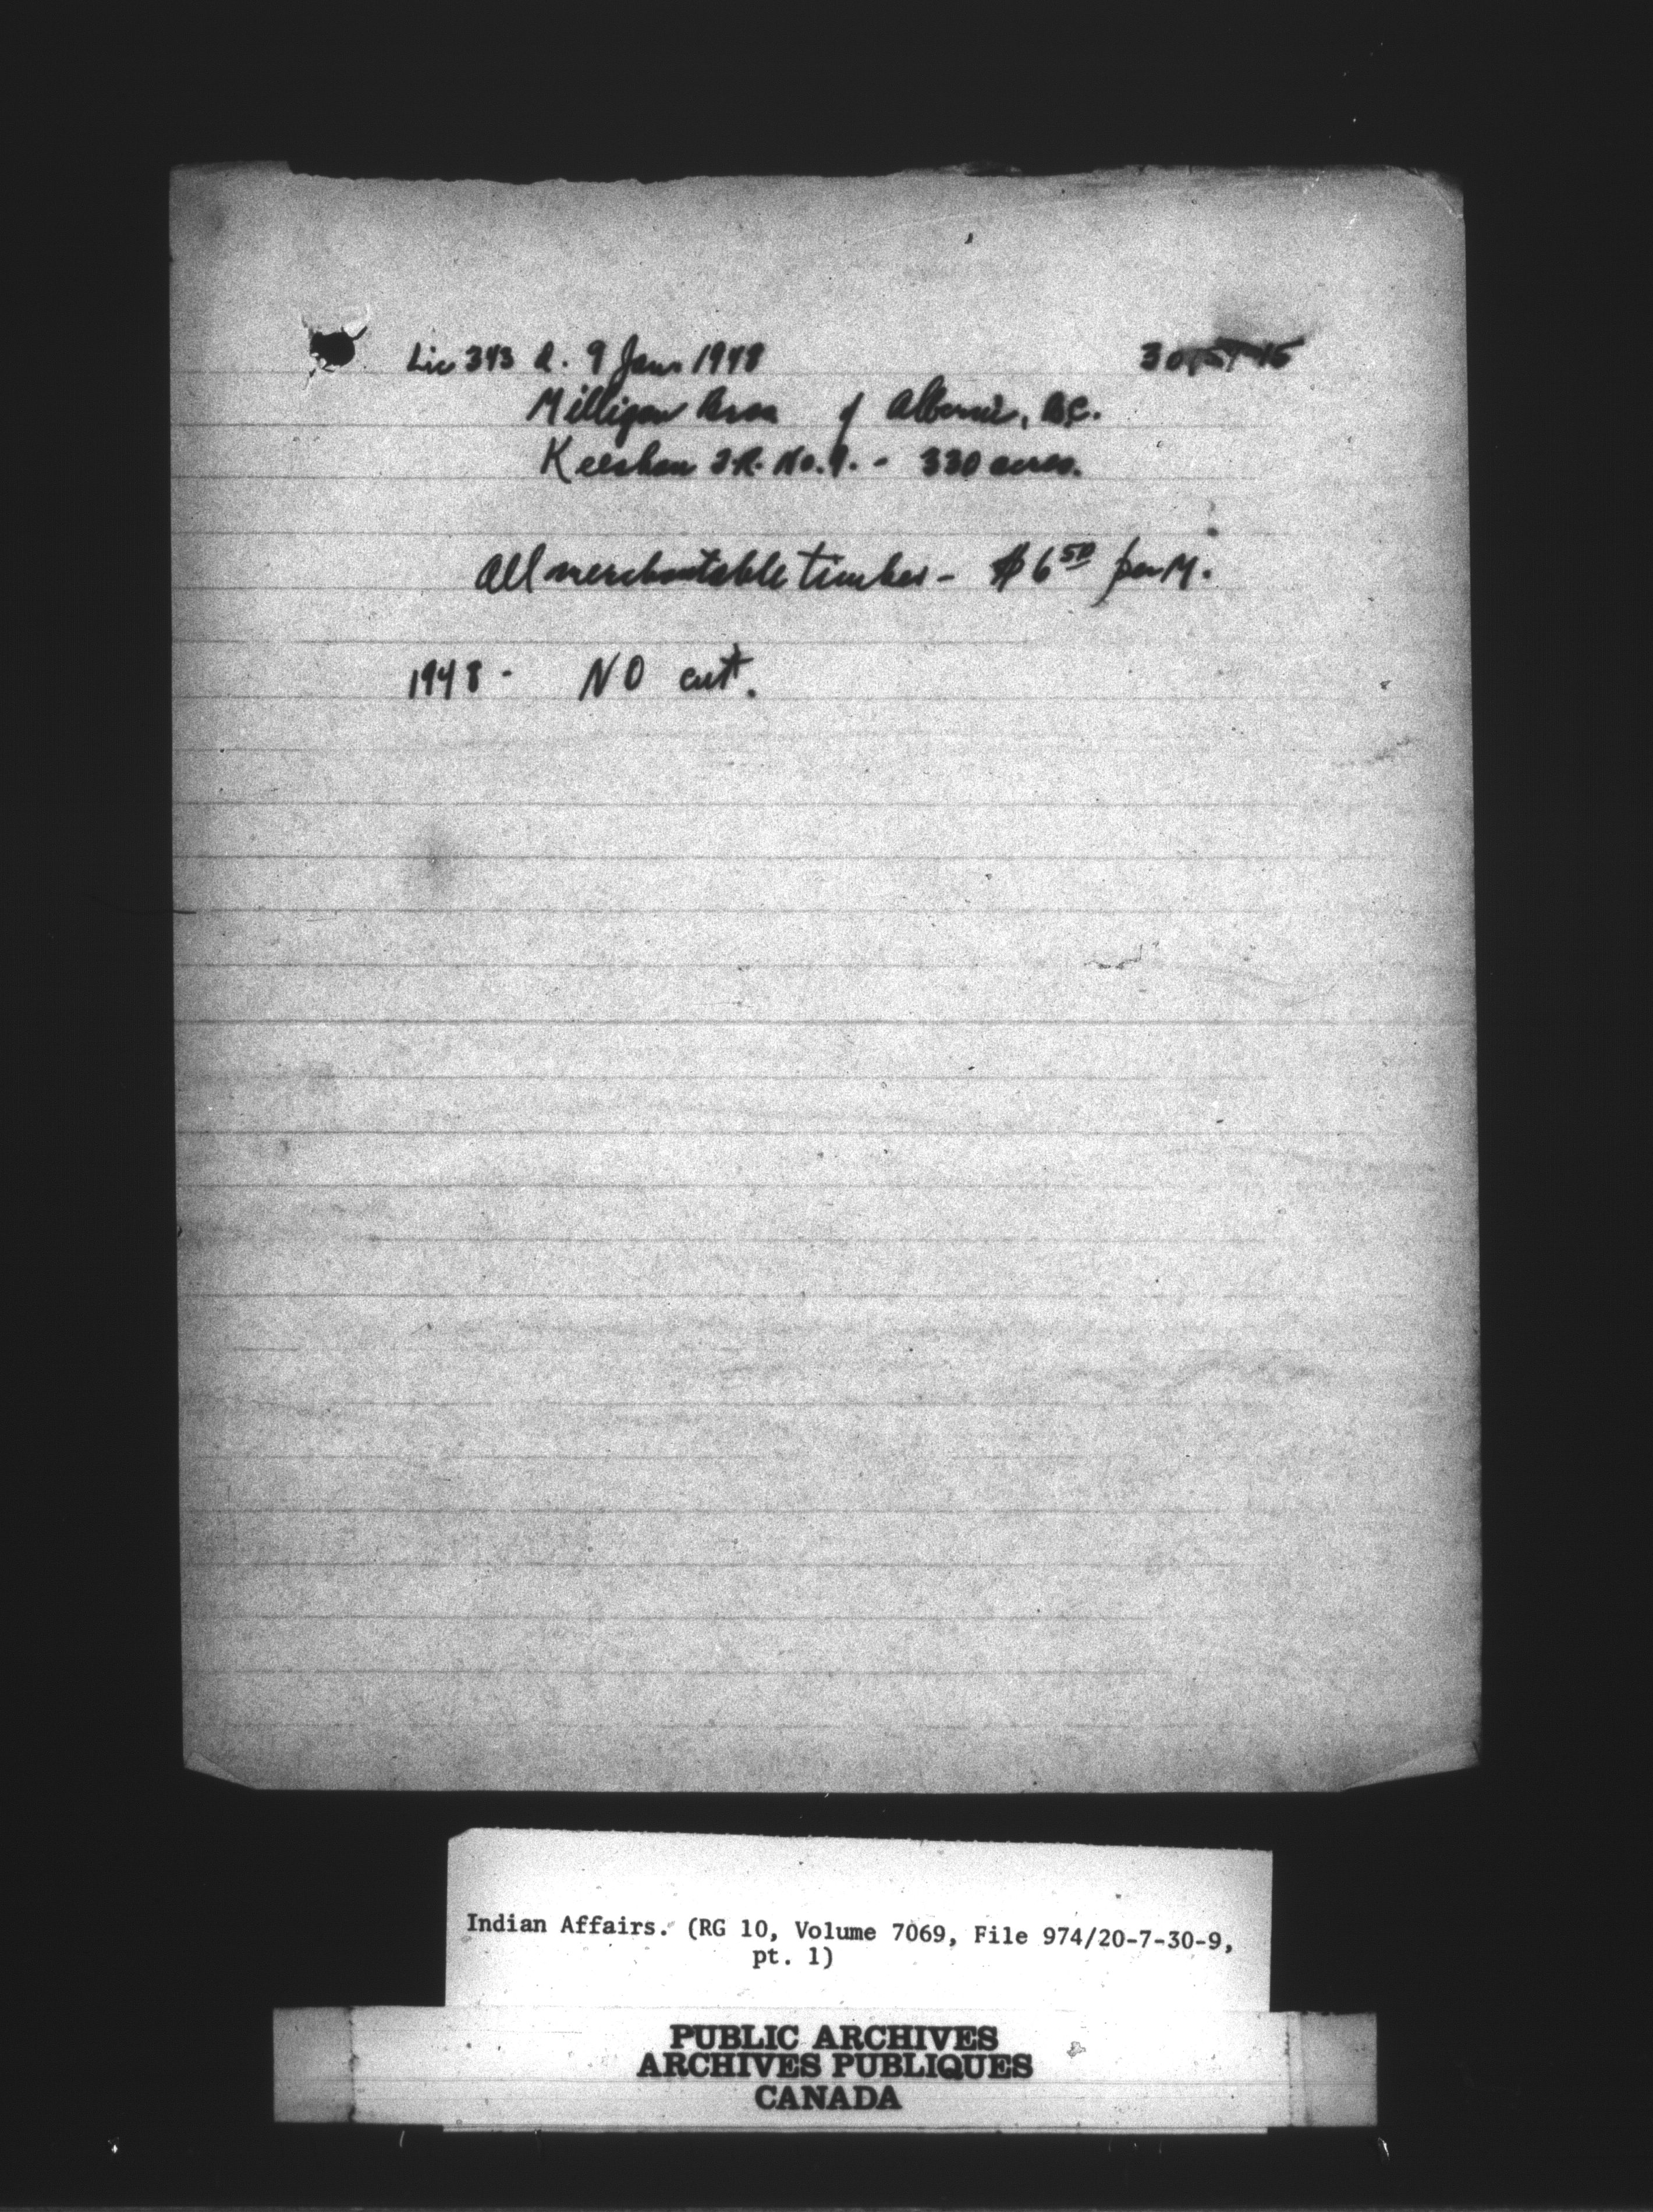 Lic 343 d. 9 Jan. 1948
Milligan Bros of Alberni, B.C.
Keeshan I.R. No. 9. - 330 acres.
All merchantable timber - $6 50 per M.
1948 - NO cut.
Indian Affairs. (RG 10, Volume 7069, File 974/20-7-30-9,
pt. 1)
PUBLIC ARCHIVES
ARCHIVES PUBLIQUES
CANADA